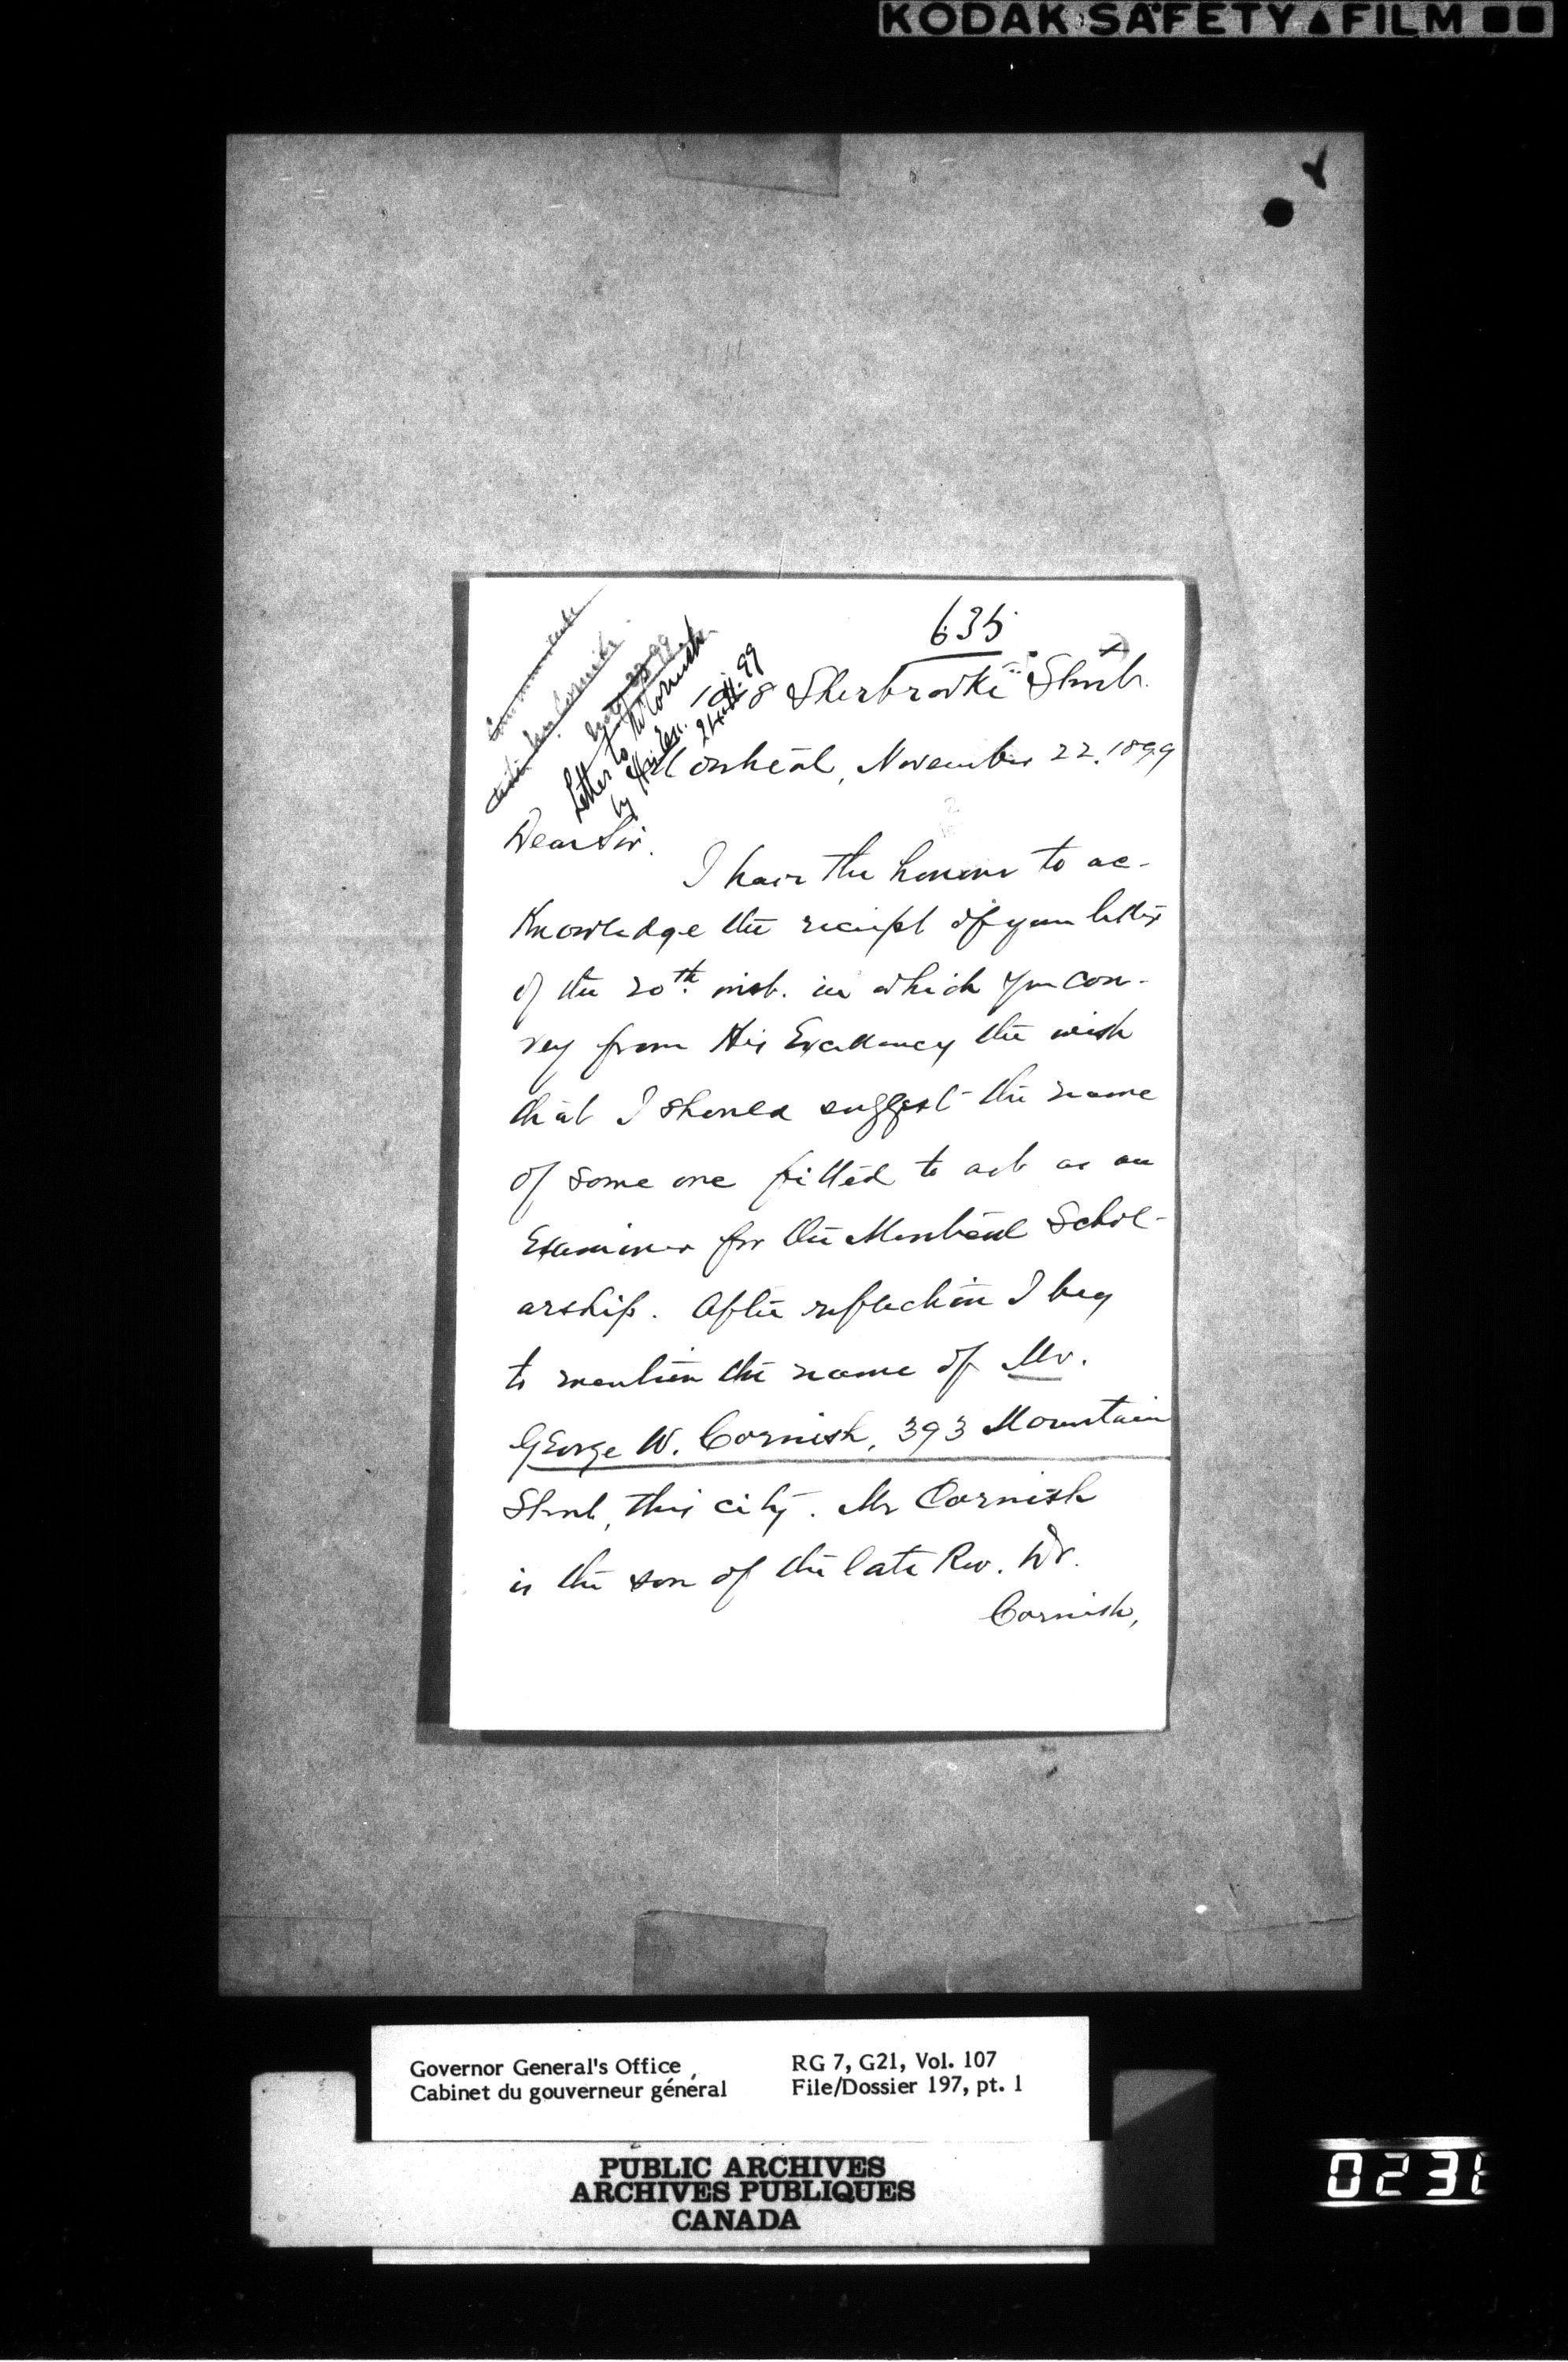 KODAK SAFETY FILM
635
1018 Sherbrooke Street.
Montreal, November 22, 1899
Letter to Mr Cornish
by His Ex.
24.11.99
Dear Sir.
I have the honour to ac-
knowledge the receipt of your letter
of the 20th inst. in which you con-
vey from His Excellency the wish
that I should suggest the name
of some one fitted to act as an
Examiner for the Montreal Schol-
arship. After reflection I beg
to mention the name of Mr.
George W. Cornish, 393 Mountain
Street, this city. Mr Cornish
is the son of the late Rev. Dr.
Cornish,
Governor General's Office
Cabinet du gouverneur général
RG 7, G21, Vol. 107
File/Dossier 197, pt. 1
PUBLIC ARCHIVES
ARCHIVES PUBLIQUES
CANADA
023